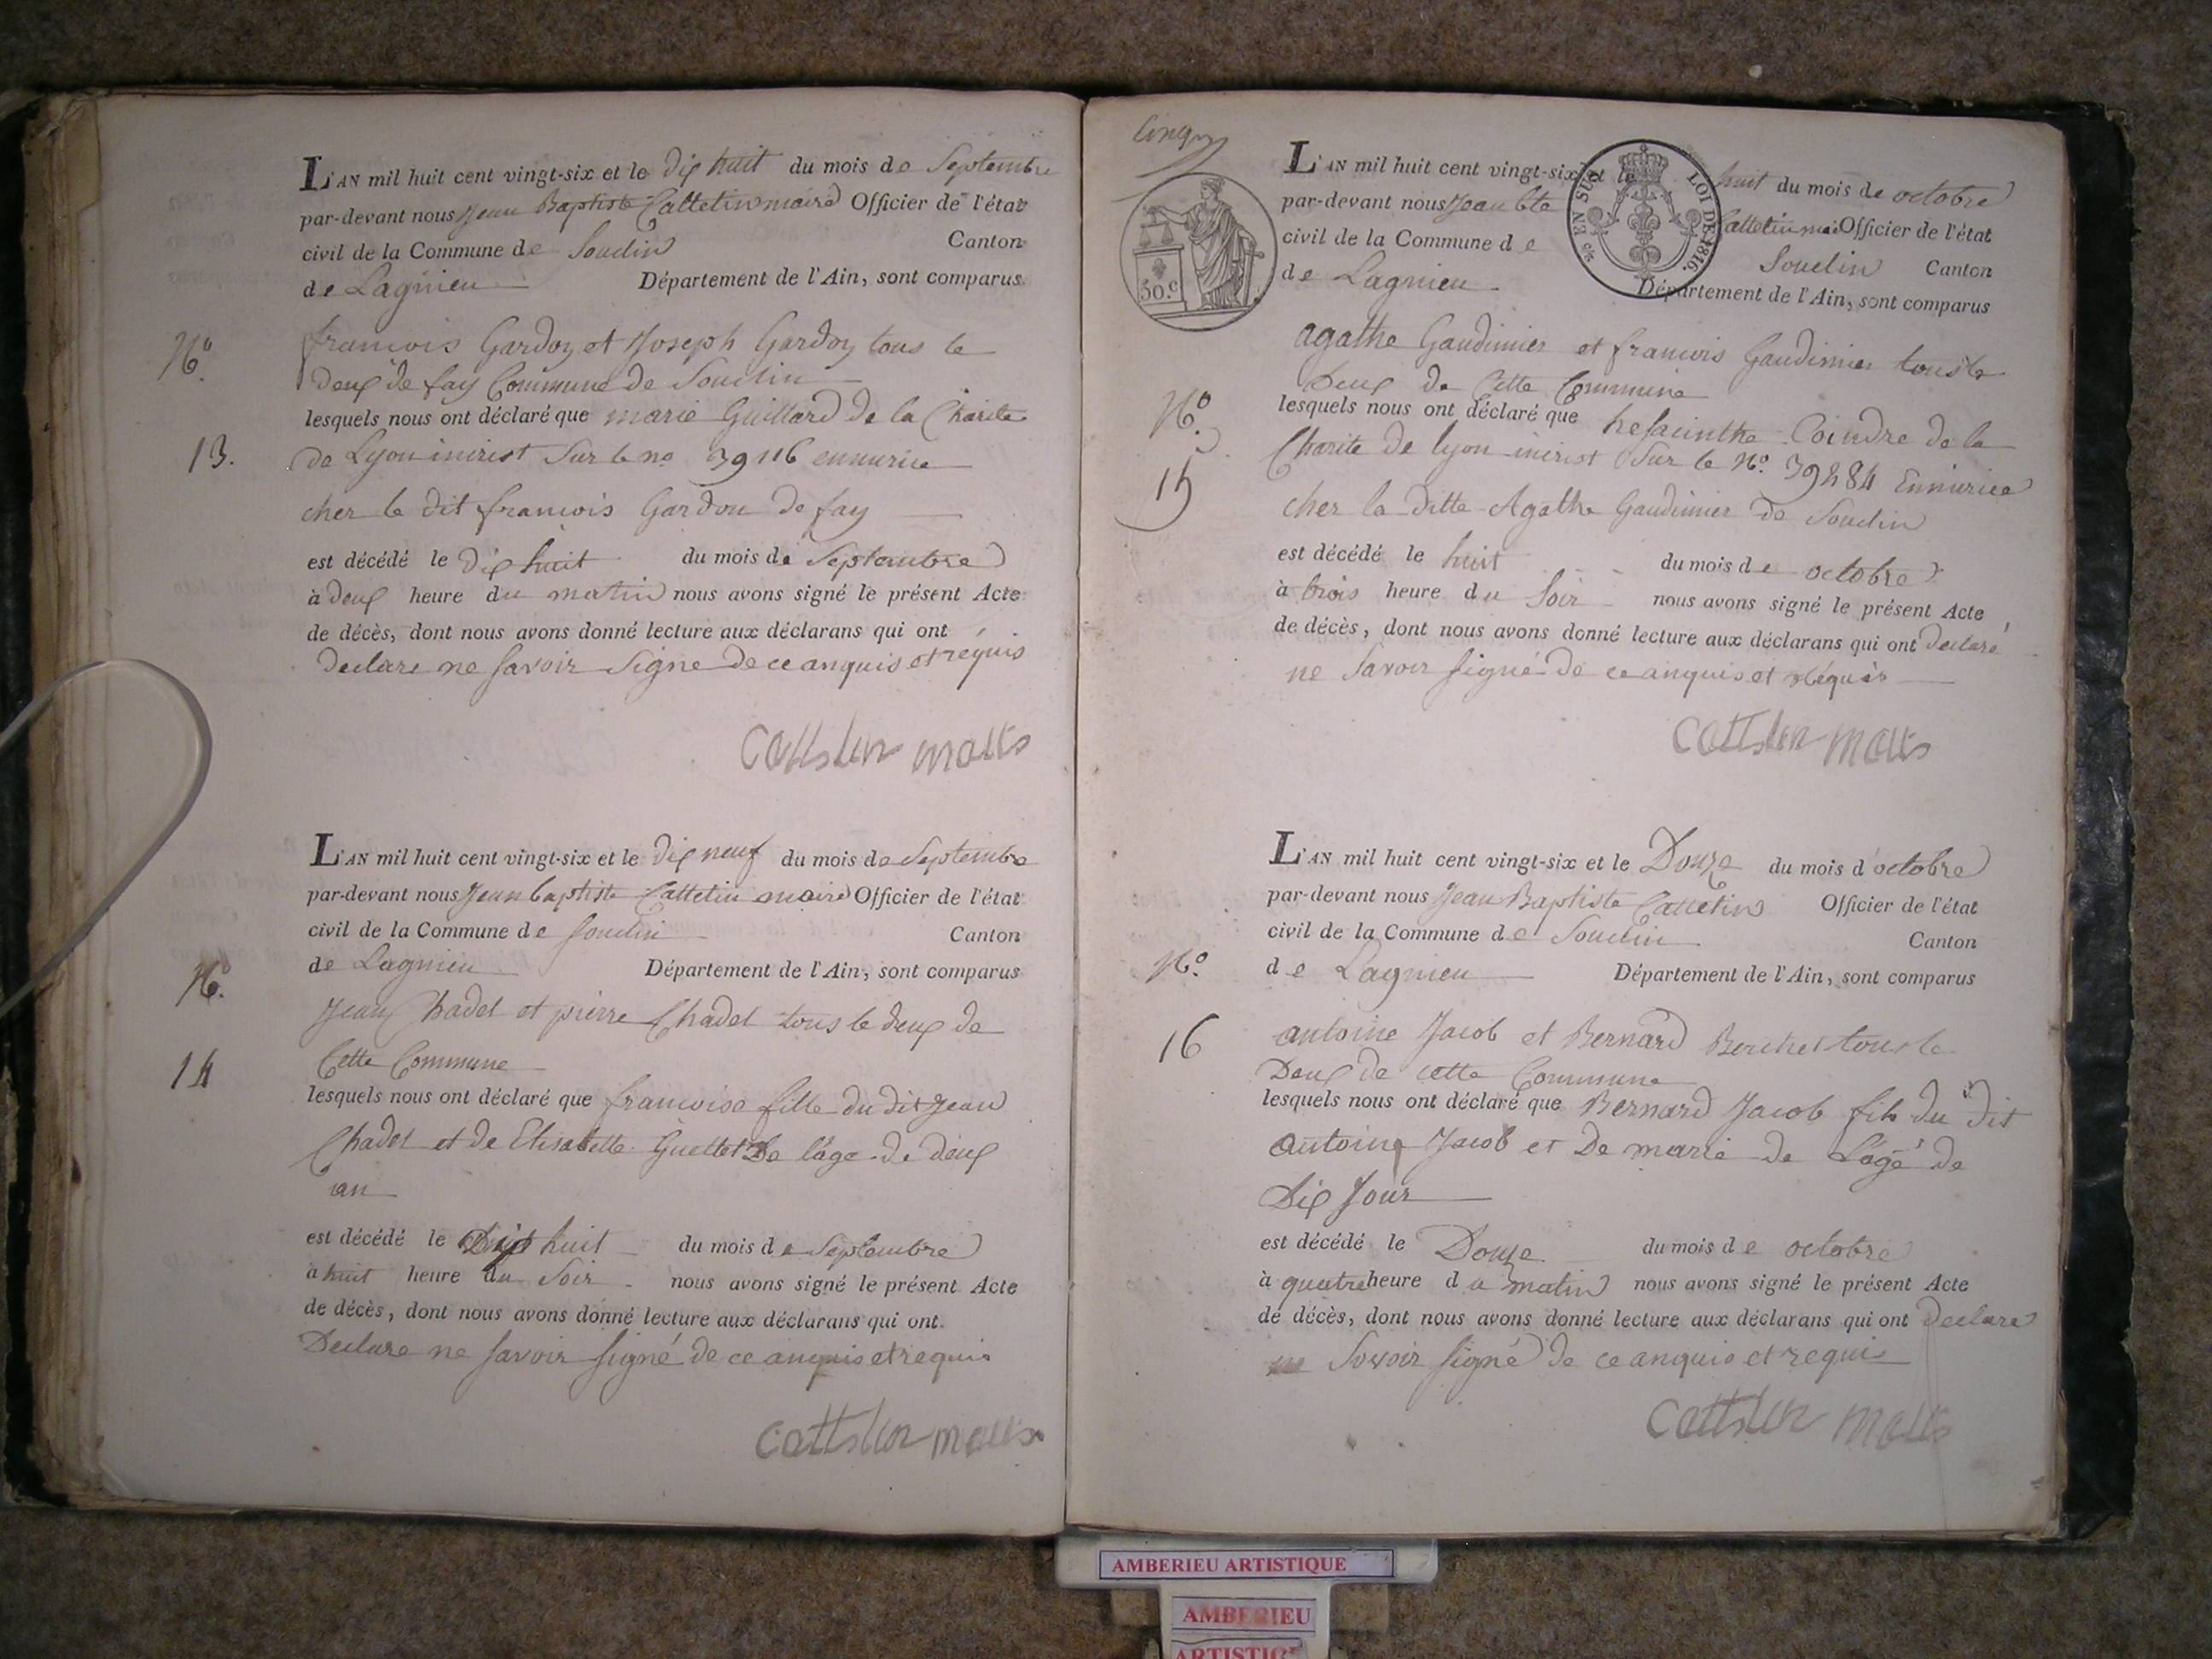 L'AN mil huit cent vingt-six et le dix huit du mois de Septembre
par-devant nous Jean Baptiste Cattetin maire Officier de l'état
civil de la Commune de Souclin Canton
de Lagnieu Département de l'Ain, sont comparus
francois Gardoy et Joseph Gardoy tous le
deux de fay Commune de Souclin
N.o
lesquels nous ont déclaré que marie Guillard de la Charite
13. de Lyon inirist Sur le no 39116 ennurice
cher le dit francois Gardon de fay
est décédé le dix huit du mois de Septembre
à deux heure du matin nous avons signé le présent Acte
de décès, dont nous avons donné lecture aux déclarans qui ont
Declare ne Savoir Signe de ce anquis et réquis
Cattetin maire
L'AN mil huit cent vingt-six et le dix neuf du mois de Septembre
par-devant nous Jean baptiste Cattetin maire Officier de l'état
civil de la Commune de Souclin Canton
N.o de Lagnieu Département de l'Ain, sont comparus
Jean Chadel et pierre Chadel tous le deux de
14 Cette Commune
lesquels nous ont déclaré que francoise fille du dit Jean
Chadel et de Elisabette Guellet De l'age de deux
an
est décédé le Dix huit du mois de Septembre
à huit heure du Soir nous avons signé le présent Acte
de décès, dont nous avons donné lecture aux déclarans qui ont
Declare ne savoir signé de ce anquis et requis
Cattetin maire
Cinq
50.c
EN SUS
LOI DE 1816.
L'AN mil huit cent vingt-six et le huit du mois de octobre
par-devant nous Jean bte Cattetin mai Officier de l'état
civil de la Commune de Souclin Canton
de Lagnieu Département de l'Ain, sont comparus
agathe Gaudinier et francois Gaudinier tous le
Deux de Cette Commune
N.o lesquels nous ont déclaré que hesacinthe Coindre de la
Charite de lyon inirist Sur le No. 39284 Ennurice
15 cher la ditte Agathe Gaudinier de Souclin
est décédé le huit du mois de octobre
à trois heure du Soir nous avons signé le présent Acte
de décès, dont nous avons donné lecture aux déclarans qui ont declare
ne Savoir signé de ce anquis et réquis
Cattetin maire
L'AN mil huit cent vingt-six et le Douze du mois d'octobre
par-devant nous Jean Baptiste Cattetin Officier de l'état
civil de la Commune de Souclin Canton
N.o de Lagnieu Département de l'Ain, sont comparus
16 antoine Jacob et Bernard Berchet tous le
Deux de cette Commune
lesquels nous ont déclaré que Bernard Jacob fils du dit
antoine Jacob et De marie de Lagé de
Dix Jour
est décédé le Douze du mois de octobre
à quatre heure du matin nous avons signé le présent Acte
de décès, dont nous avons donné lecture aux déclarans qui ont declare
ne Savoir signé de ce anquis et requis
Cattetin maire
AMBERIEU ARTISTIQUE
AMBERIEU
ARTISTIQ